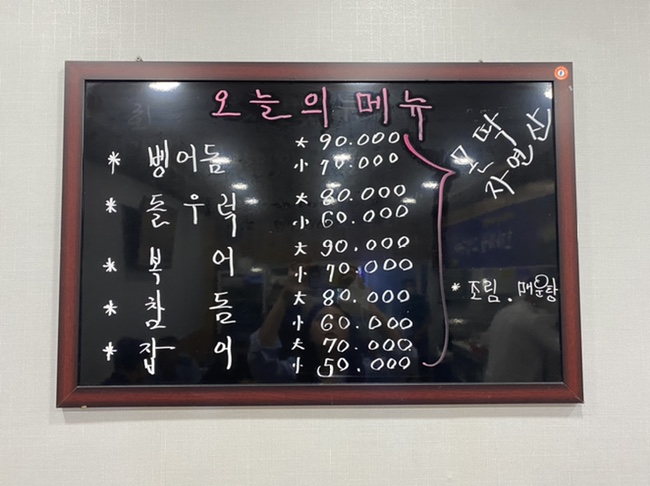 오늘의 메뉴
* 벵어돔 大 90.000
小 70.000
* 돌우럭 大 80.000
小 60.000
* 복어 大 90.000
小 70.000
* 참돔 大 80.000
小 60.000
* 잡어 大 70.000
小 50.000
몬딱
자연산
* 조림. 매운탕